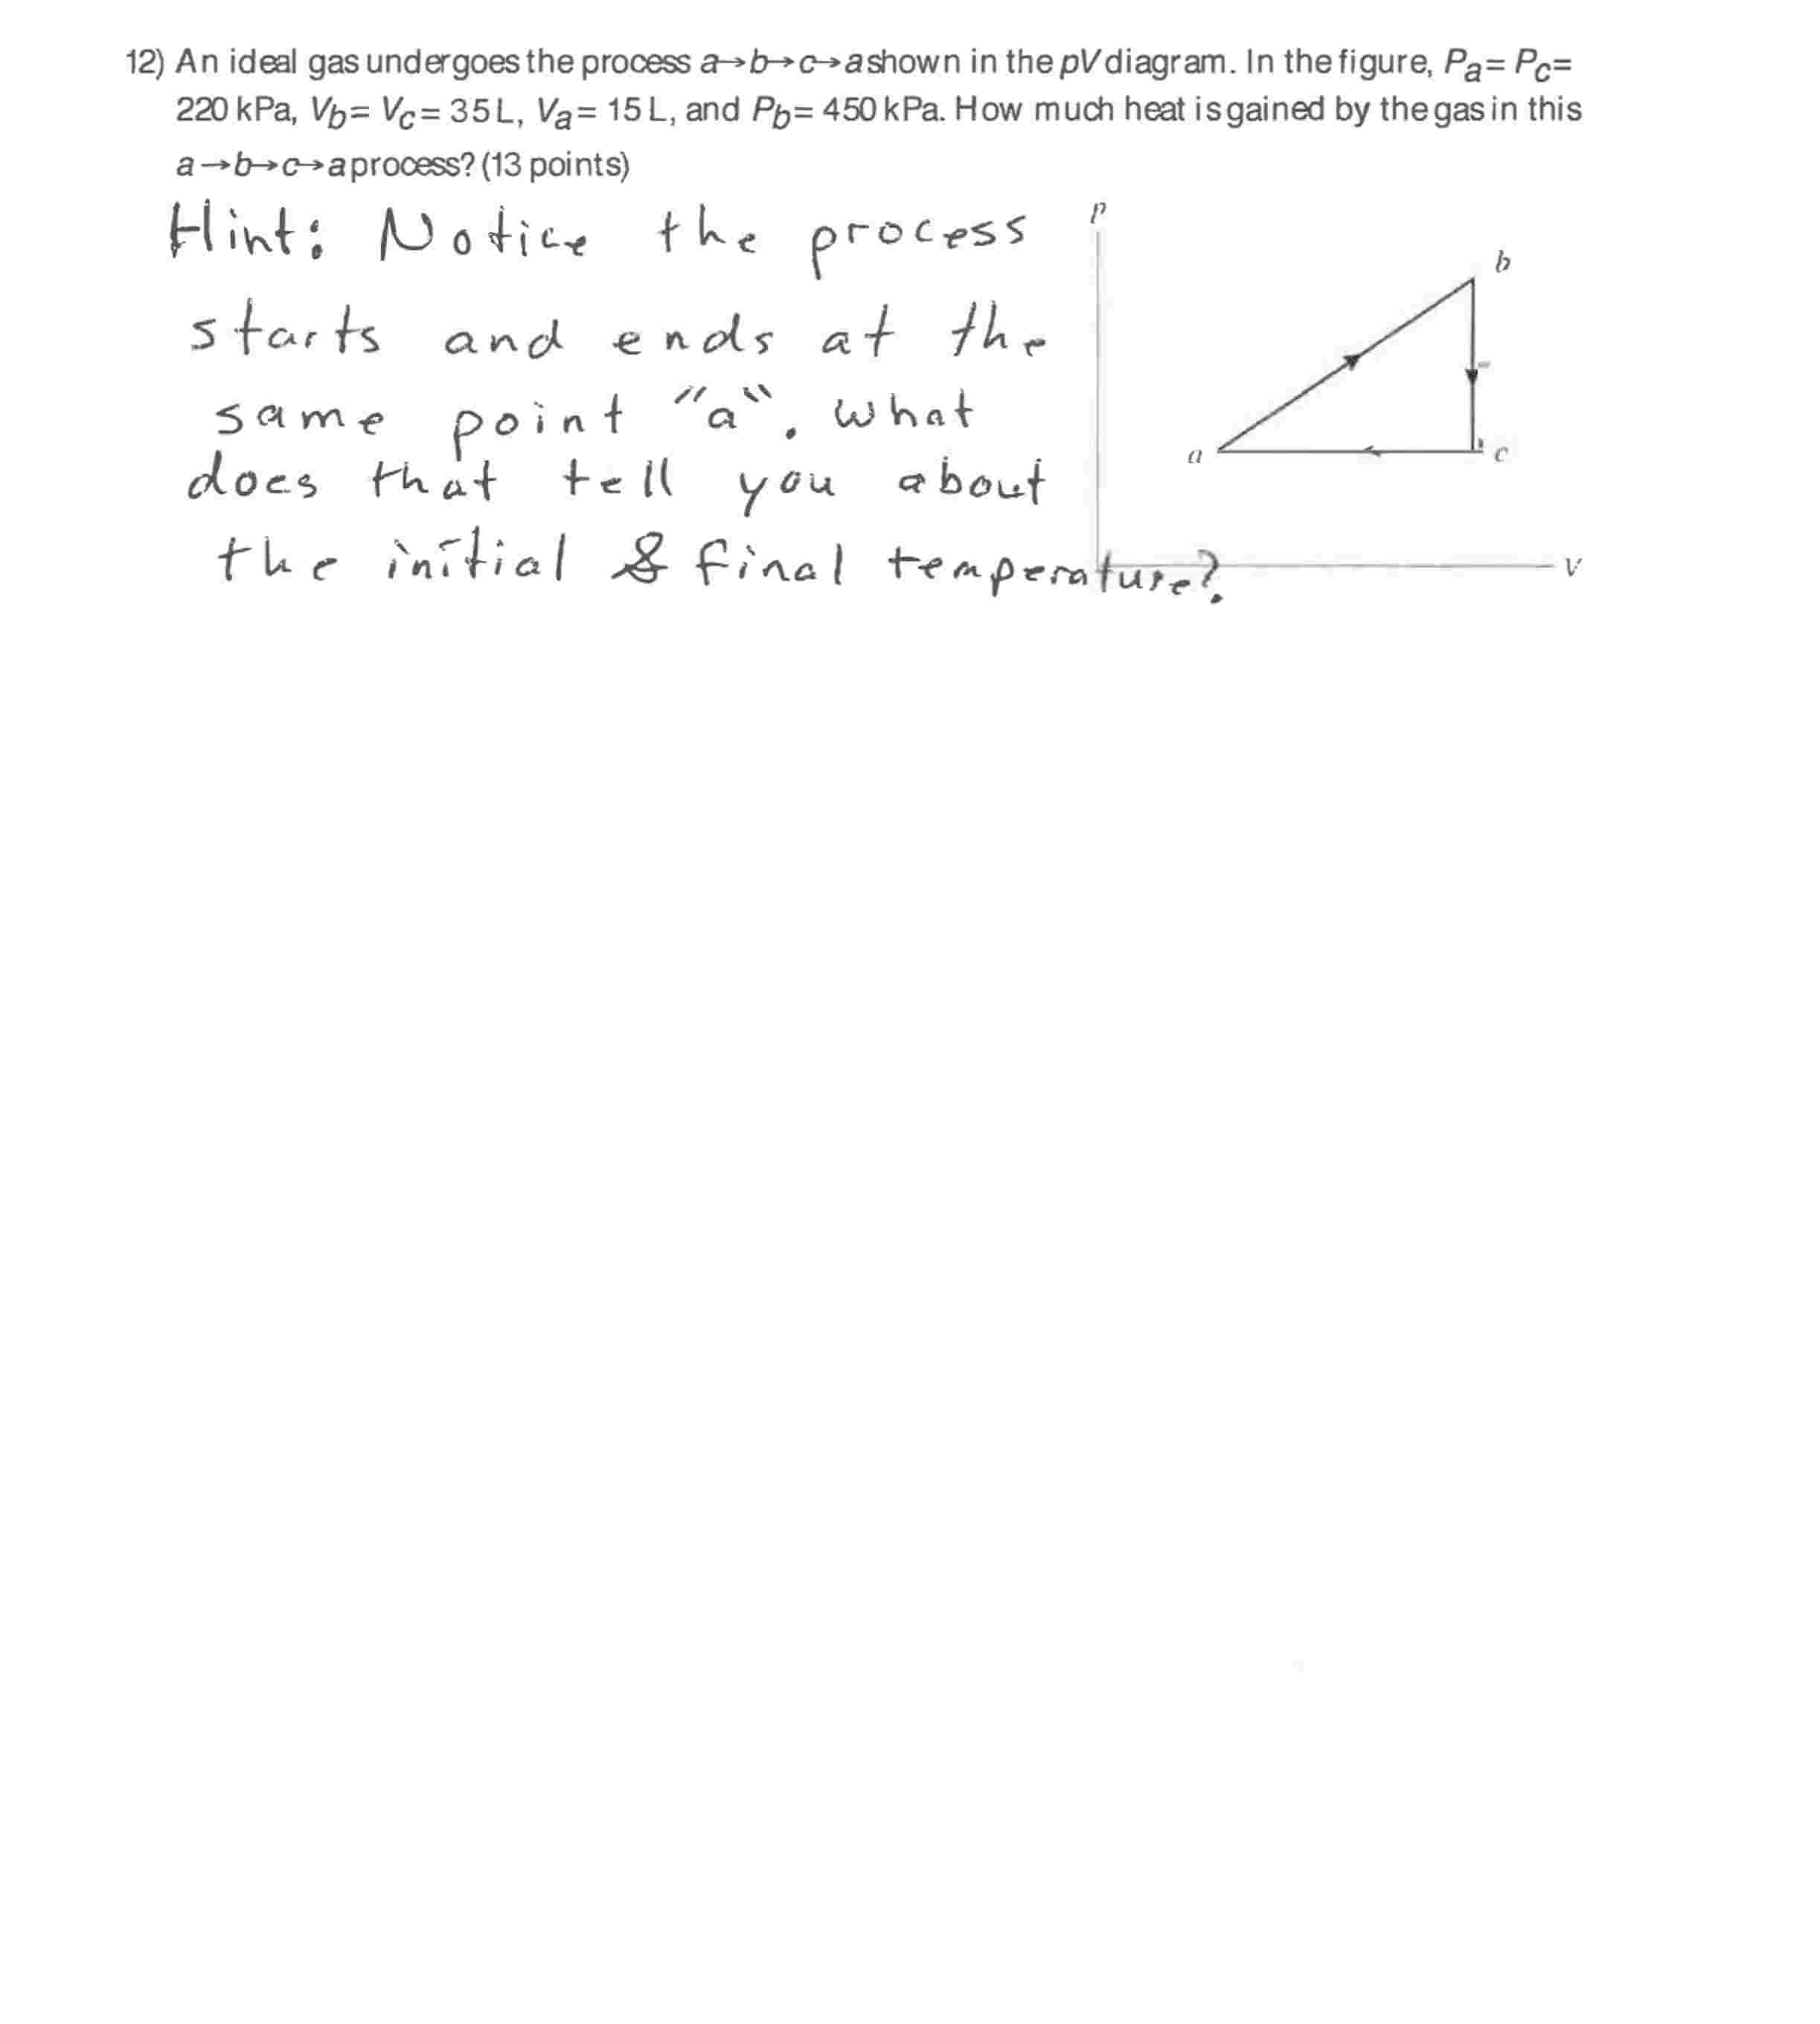 12) An ideal gas undergoes the process a→b→c→a shown in the pV diagram. In the figure, Pa = Pc =
220 kPa, Vb = Vc = 35 L, Va = 15 L, and Pb = 450 kPa. How much heat is gained by the gas in this
a→b→c→a process? (13 points)
Hint: Notice the process
starts and ends at the
same point "a". What
does that tell you about
the initial & final temperature?
p
b
a
c
V